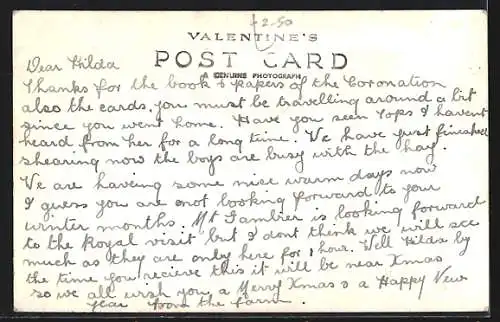 £2-50
VALENTINE'S
POST CARD
A GENUINE PHOTOGRAPH
Dear Hilda
Thanks for the book & papers of the Coronation
also the cards, you must be travelling around a bit
since you went home. Have you seen Tops I havent
heard from her for a long time. We have just finished
shearing now the boys are busy with the hay.
We are having some nice warm days now
I guess you are not looking forward to your
winter months. Mt Gambier is looking forward
to the Royal visit but I dont think we will see
much as they are only here for 1 hour. Well Hilda by
the time you recieve this it will be near Xmas
so we all wish you a Merry Xmas & a Happy New
Year from the farm.